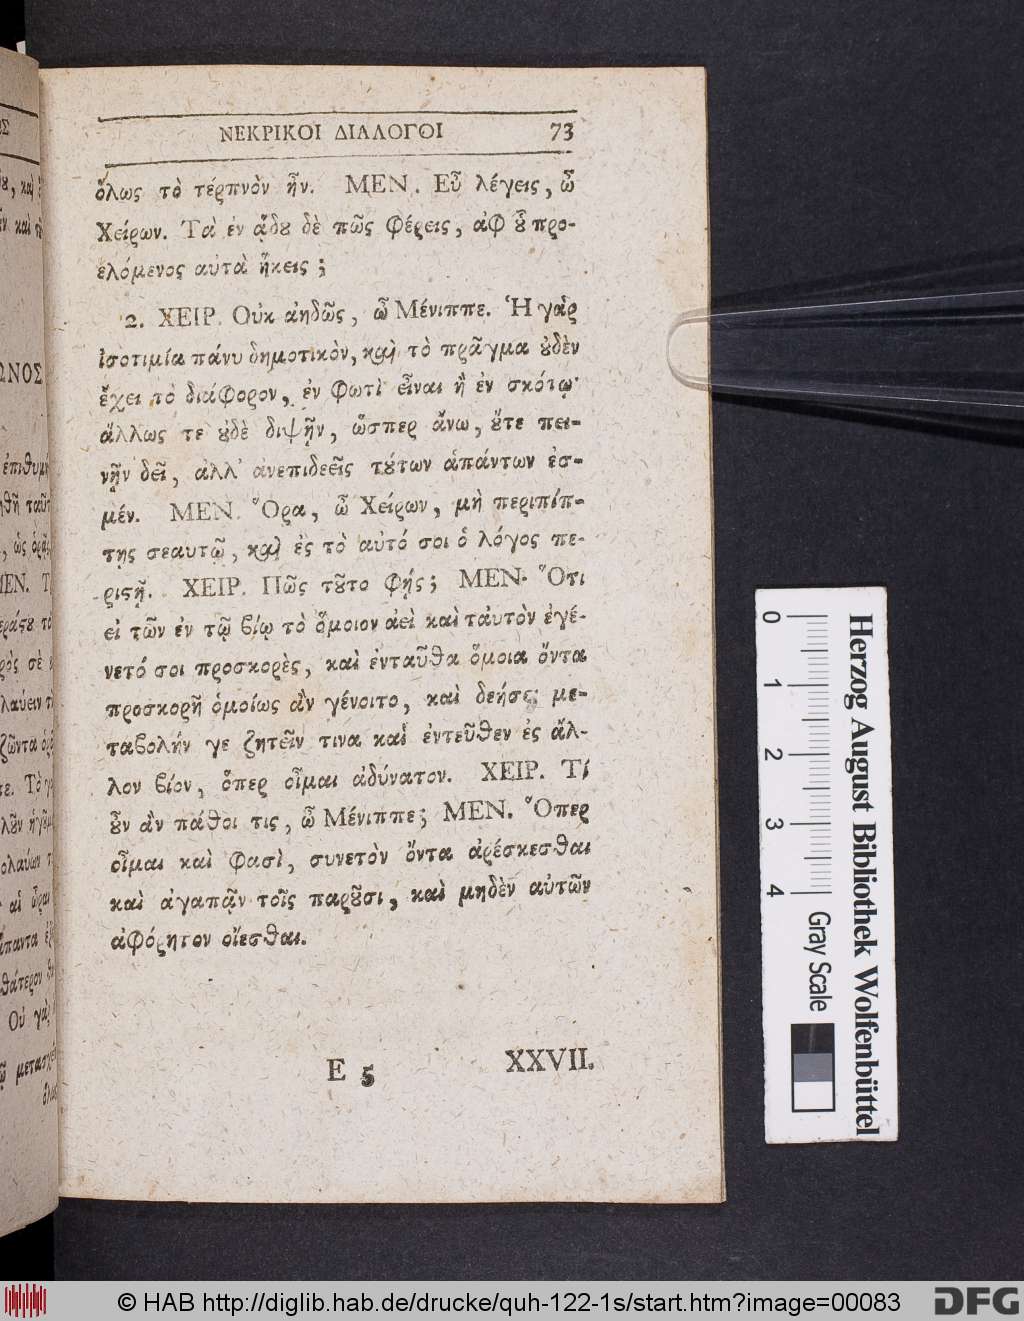 ΝΕΚΡΙΚΟΙ ΔΙΑΛΟΓΟΙ 73
ὅλως τὸ τέρπνὸν ἦν. ΜΕΝ. Εὖ λέγεις, ὦ
Χείρων. Τὰ ἐν ᾅδȣ δὲ πῶς φέρεις, ἀφ ȣ̔͂ προ-
ελόμενος αὐτὰ ἥκεις;
2. ΧΕΙΡ. Οὐκ ἀηδῶς, ὦ Μένιππε. Ἡ γάρ
ἰσοτιμία πάνυ δημοτικὸν, καὶ τὸ πρᾶγμα ȣ̓δὲν
ἔχει τὸ διάφορον, ἐν φωτὶ εἶναι ἢ ἐν σκότῳ·
ἄλλως τε ȣ̓δὲ διψῇν, ὥσπερ ἄνω, ȣ̓́τε πει-
νῇν δεῖ, ἀλλ᾽ ἀνεπιδεεῖς τȣ́των ἁπάντων ἐσ-
μέν. ΜΕΝ. Ὅρα, ὦ Χείρων, μὴ περιπίπ-
τῃς σεαυτῷ, καὶ ἐς τὸ αὐτό σοι ὁ λόγος πε-
ριϛῇ. ΧΕΙΡ. Πῶς τȣ͂το φῄς; ΜΕΝ. Ὅτι
εἰ τῶν ἐν τῷ βίῳ τὸ ὅμοιον ἀεὶ καὶ ταὐτὸν ἐγέ-
νετό σοι προσκορὲς, καὶ ἐνταῦθα ὅμοια ὄντα
προσκορῆ ὁμοίως ἂν γένοιτο, καὶ δεήσει με-
ταβολήν γε ζητεῖν τινα καὶ ἐντεῦθεν ἐς ἄλ-
λον βίον, ὅπερ οἶμαι ἀδύνατον. ΧΕΙΡ. Τί
ȣ̓͂ν ἂν πάθοι τις, ὦ Μένιππε; ΜΕΝ. Ὅπερ
οἶμαι καὶ φασὶ, συνετὸν ὄντα ἀρέσκεσθαι
καὶ ἀγαπᾷν τοῖς παρȣ͂σι, καὶ μηδὲν αὐτῶν
ἀφόρητον οἴεσθαι.
E 5 XXVII.
ΩΝΟΣ
0 1 2 3 4
Gray Scale
Herzog August Bibliothek Wolfenbüttel
© HAB http://diglib.hab.de/drucke/quh-122-1s/start.htm?image=00083
DFG